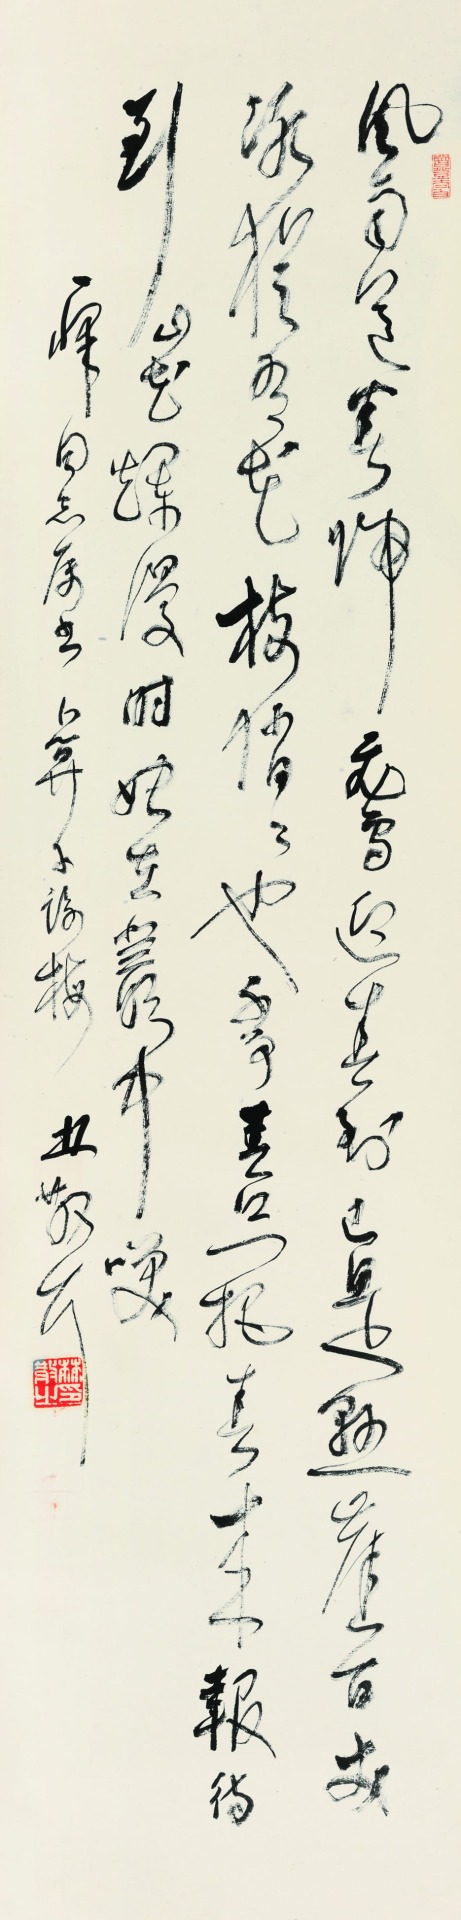 風雨送春歸飛雪迎春到已是懸崖百丈
冰猶有花枝俏俏也不爭春只把春來報待
到山花爛漫時她在叢中咲
同志屬書卜算子詠梅林散耳
林散之印